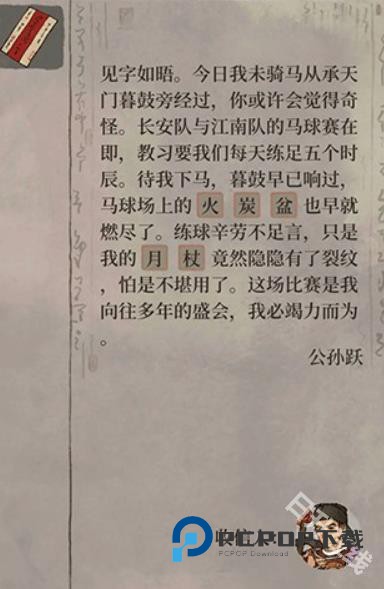 见字如晤。今日我未骑马从承天
门暮鼓旁经过，你或许会觉得奇
怪。长安队与江南队的马球赛在
即，教习要我们每天练足五个时
辰。待我下马，暮鼓早已响过，
马球场上的 火 炭 盆 也早就
燃尽了。练球辛劳不足言，只是
我的 月 杖 竟然隐隐有了裂纹
，怕是不堪用了。这场比赛是我
向往多年的盛会，我必竭力而为
。
公孙跃
PCPOP下载
PCPOP Download